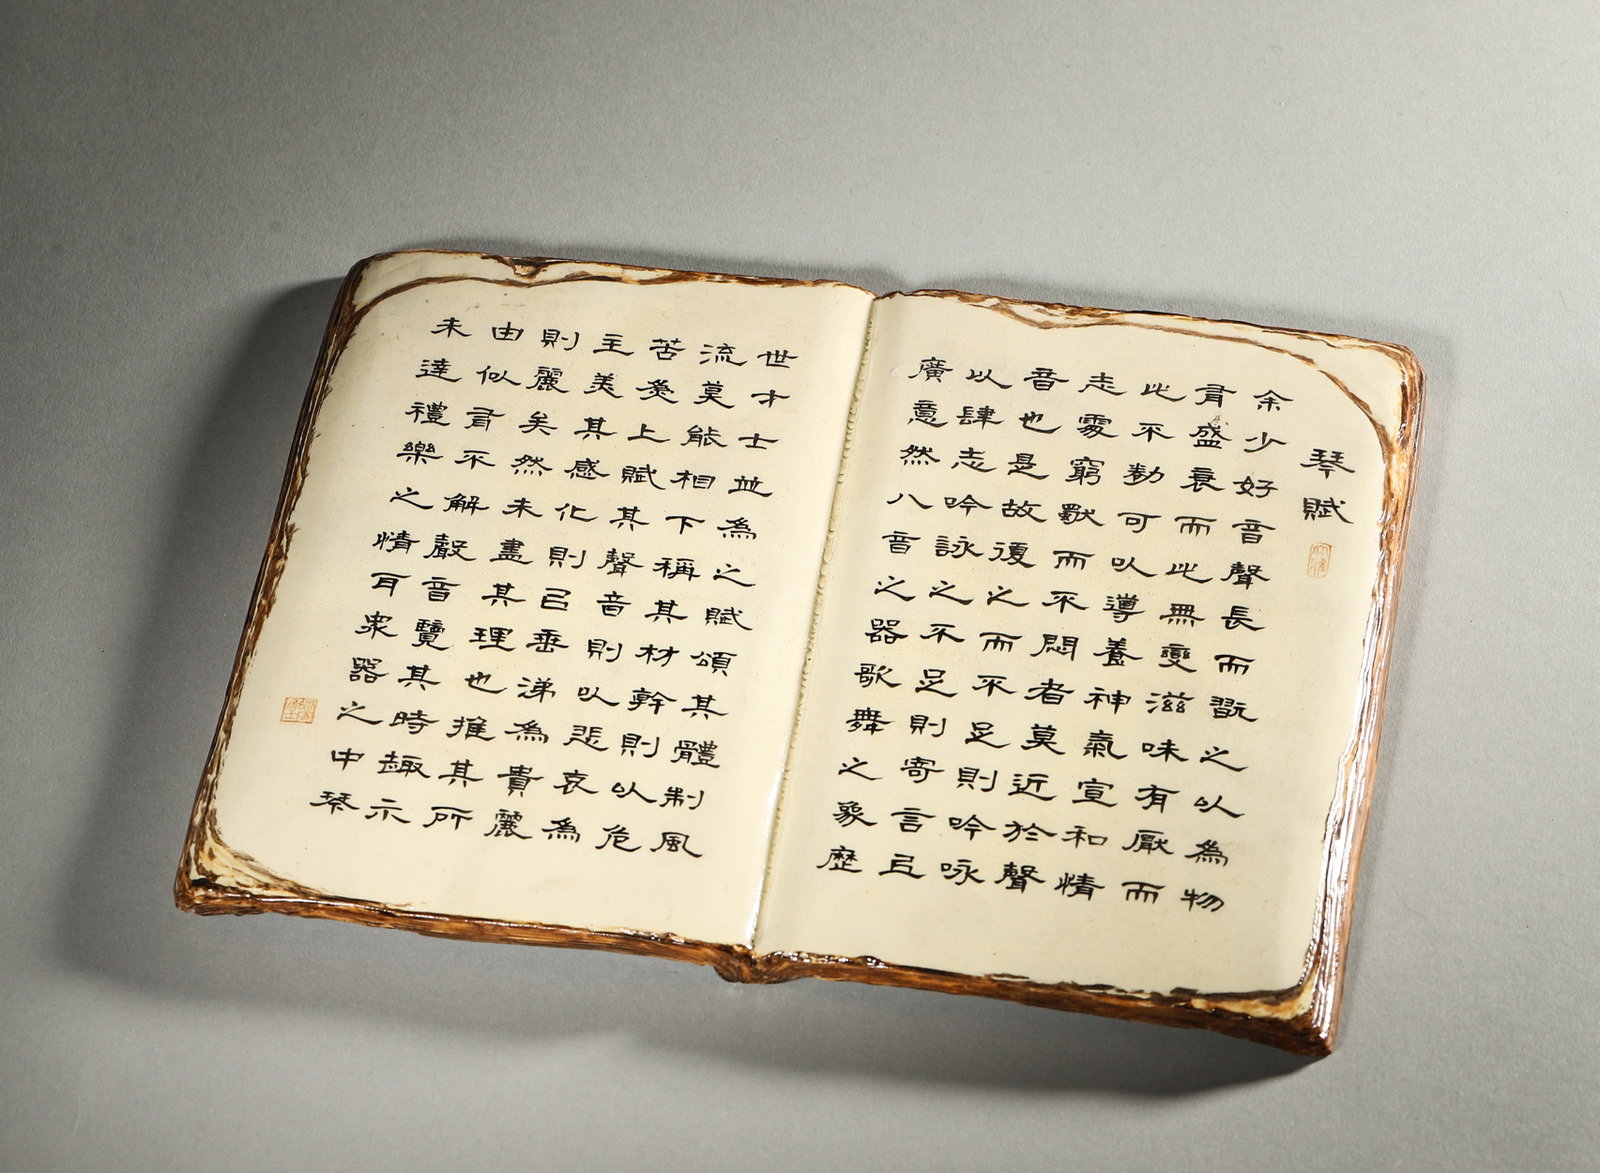 琴賦
余少好音聲長而翫之以為物
有盛衰而此無變滋味有厭而
此不勌可以導養神氣宣和情
志處窮獨而不悶者莫近於聲
音也是故復之而不足則吟咏
以肆志吟詠之不足則寄言㠯
廣意然八音之器歌舞之象歷
世才士並為之賦頌其體制風
流莫能相下稱其材幹則以危
苦為上賦其聲音則以悲哀為
主美其感化則㠯垂涕為貴麗
則麗矣然未盡其理也推其所
由似有不解聲音覽其時趣示
未達禮樂之情耳衆器之中琴